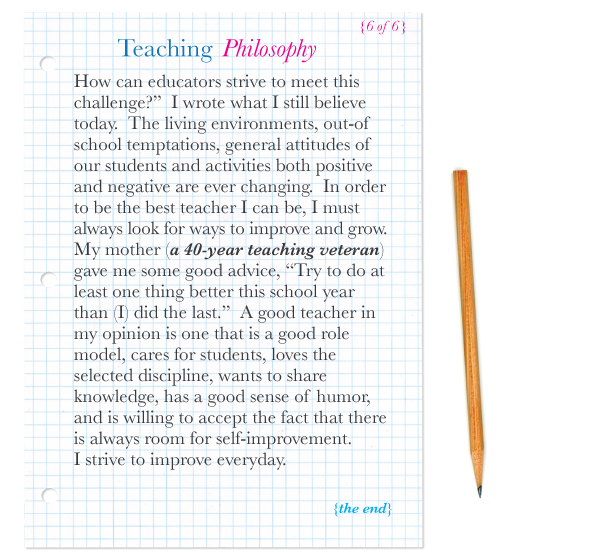 {6 of 6}
Teaching Philosophy
How can educators strive to meet this
challenge?”  I wrote what I still believe
today.  The living environments, out-of
school temptations, general attitudes of
our students and activities both positive
and negative are ever changing.  In order
to be the best teacher I can be, I must
always look for ways to improve and grow.
My mother (a 40-year teaching veteran)
gave me some good advice, “Try to do at
least one thing better this school year
than (I) did the last.”  A good teacher in
my opinion is one that is a good role
model, cares for students, loves the
selected discipline, wants to share
knowledge, has a good sense of humor,
and is willing to accept the fact that there
is always room for self-improvement.
I strive to improve everyday.
{the end}